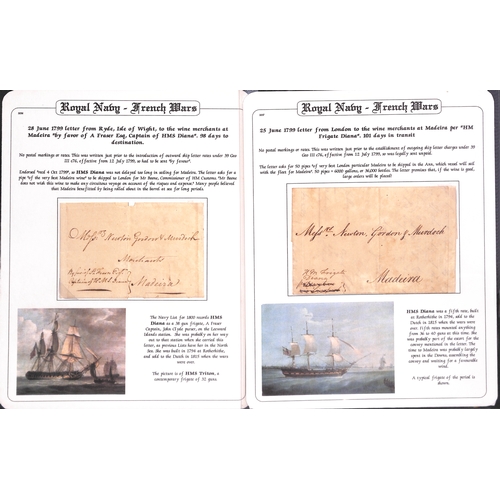 Royal Navy - French Wars
28 June 1799 letter from Ryde, Isle of Wight, to the wine merchants at
Madeira "by favor of A Fraser Esq. Captain of HMS Diana". 98 days to
destination.
No postal markings or rates. This was written just prior to the introduction of outward ship letter rates under 39 Geo
III c76, effective from 12 July 1799, so had to be sent "by favour".
Endorsed "recd 4 Oct 1799", so HMS Diana was not delayed too long in sailing for Madeira. The letter asks for a
pipe "of the very best Madeira Wine" to be shipped to London for Mr Bume, Commissioner of HM Customs. "Mr Bume
does not wish this wine to make any circuitous voyage on account of the risques and expence". Many people believed
that Madeira benefitted by being rolled about in the barrel at sea for long periods.
Messrs Newton Gordon & Murdoch
Merchants
Madeira
The Navy List for 1800 records HMS
Diana as a 38 gun frigate, A Fraser
Captain, John Clyde purser, on the Leeward
Islands station. She was probably on her way
out to that station when she carried this
letter, as previous Lists have her in the North
Sea. She was built in 1794 at Rotherhithe,
and sold to the Dutch in 1815 when the wars
were over.
The picture is of HMS Triton, a
contemporary frigate of 32 guns.
Royal Navy - French Wars
25 June 1799 letter from London to the wine merchants at Madeira per "HM
Frigate Diana". 101 days in transit
No postal markings or rates. This was written just prior to the establishment of outgoing ship letter charges under 39
Geo III c76, effective from 12 July 1799, so was legally sent unpaid.
The letter asks for 50 pipes "of very best London particular Madeira to be shipped in the Ann, which vessel will sail
with the fleet for Madeira". 50 pipes = 6000 gallons, or 36,000 bottles. The letter promises that, if the wine is good,
large orders will be placed!
Messrs. Newton, Gordon & Murdoch
Madeira
P HM Frigate
Diana
HMS Diana was a fifth rate, built
at Rotherhithe in 1794, and sold to the
Dutch in 1815 when the wars were
over. Fifth rates mounted anything
from 36 to 40 guns at this time. She
was probably part of the escort for the
convoy mentioned in the letter. The
time to Madeira was probably largely
spent in the Downs, assembling the
convoy and waiting for a favourable
wind.
A typical frigate of the period is
shown.